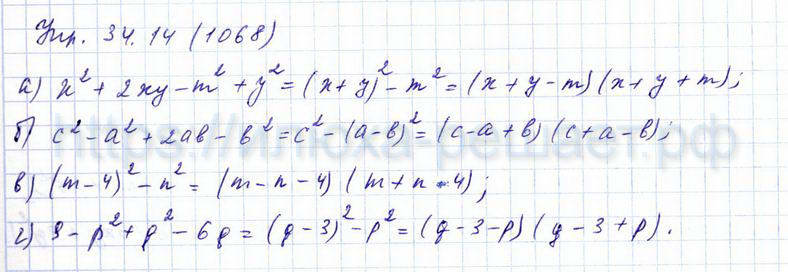 Упр. 34.14 (1068)
а) x² + 2xy - m² + y² = (x+y)² - m² = (x+y-m)(x+y+m);
б) c² - a² + 2ab - b² = c² - (a-b)² = (c-a+b)(c+a-b);
в) (m-4)² - n² = (m-n-4)(m+n-4);
г) 9 - p² + q² - 6q = (q-3)² - p² = (q-3-p)(q-3+p).